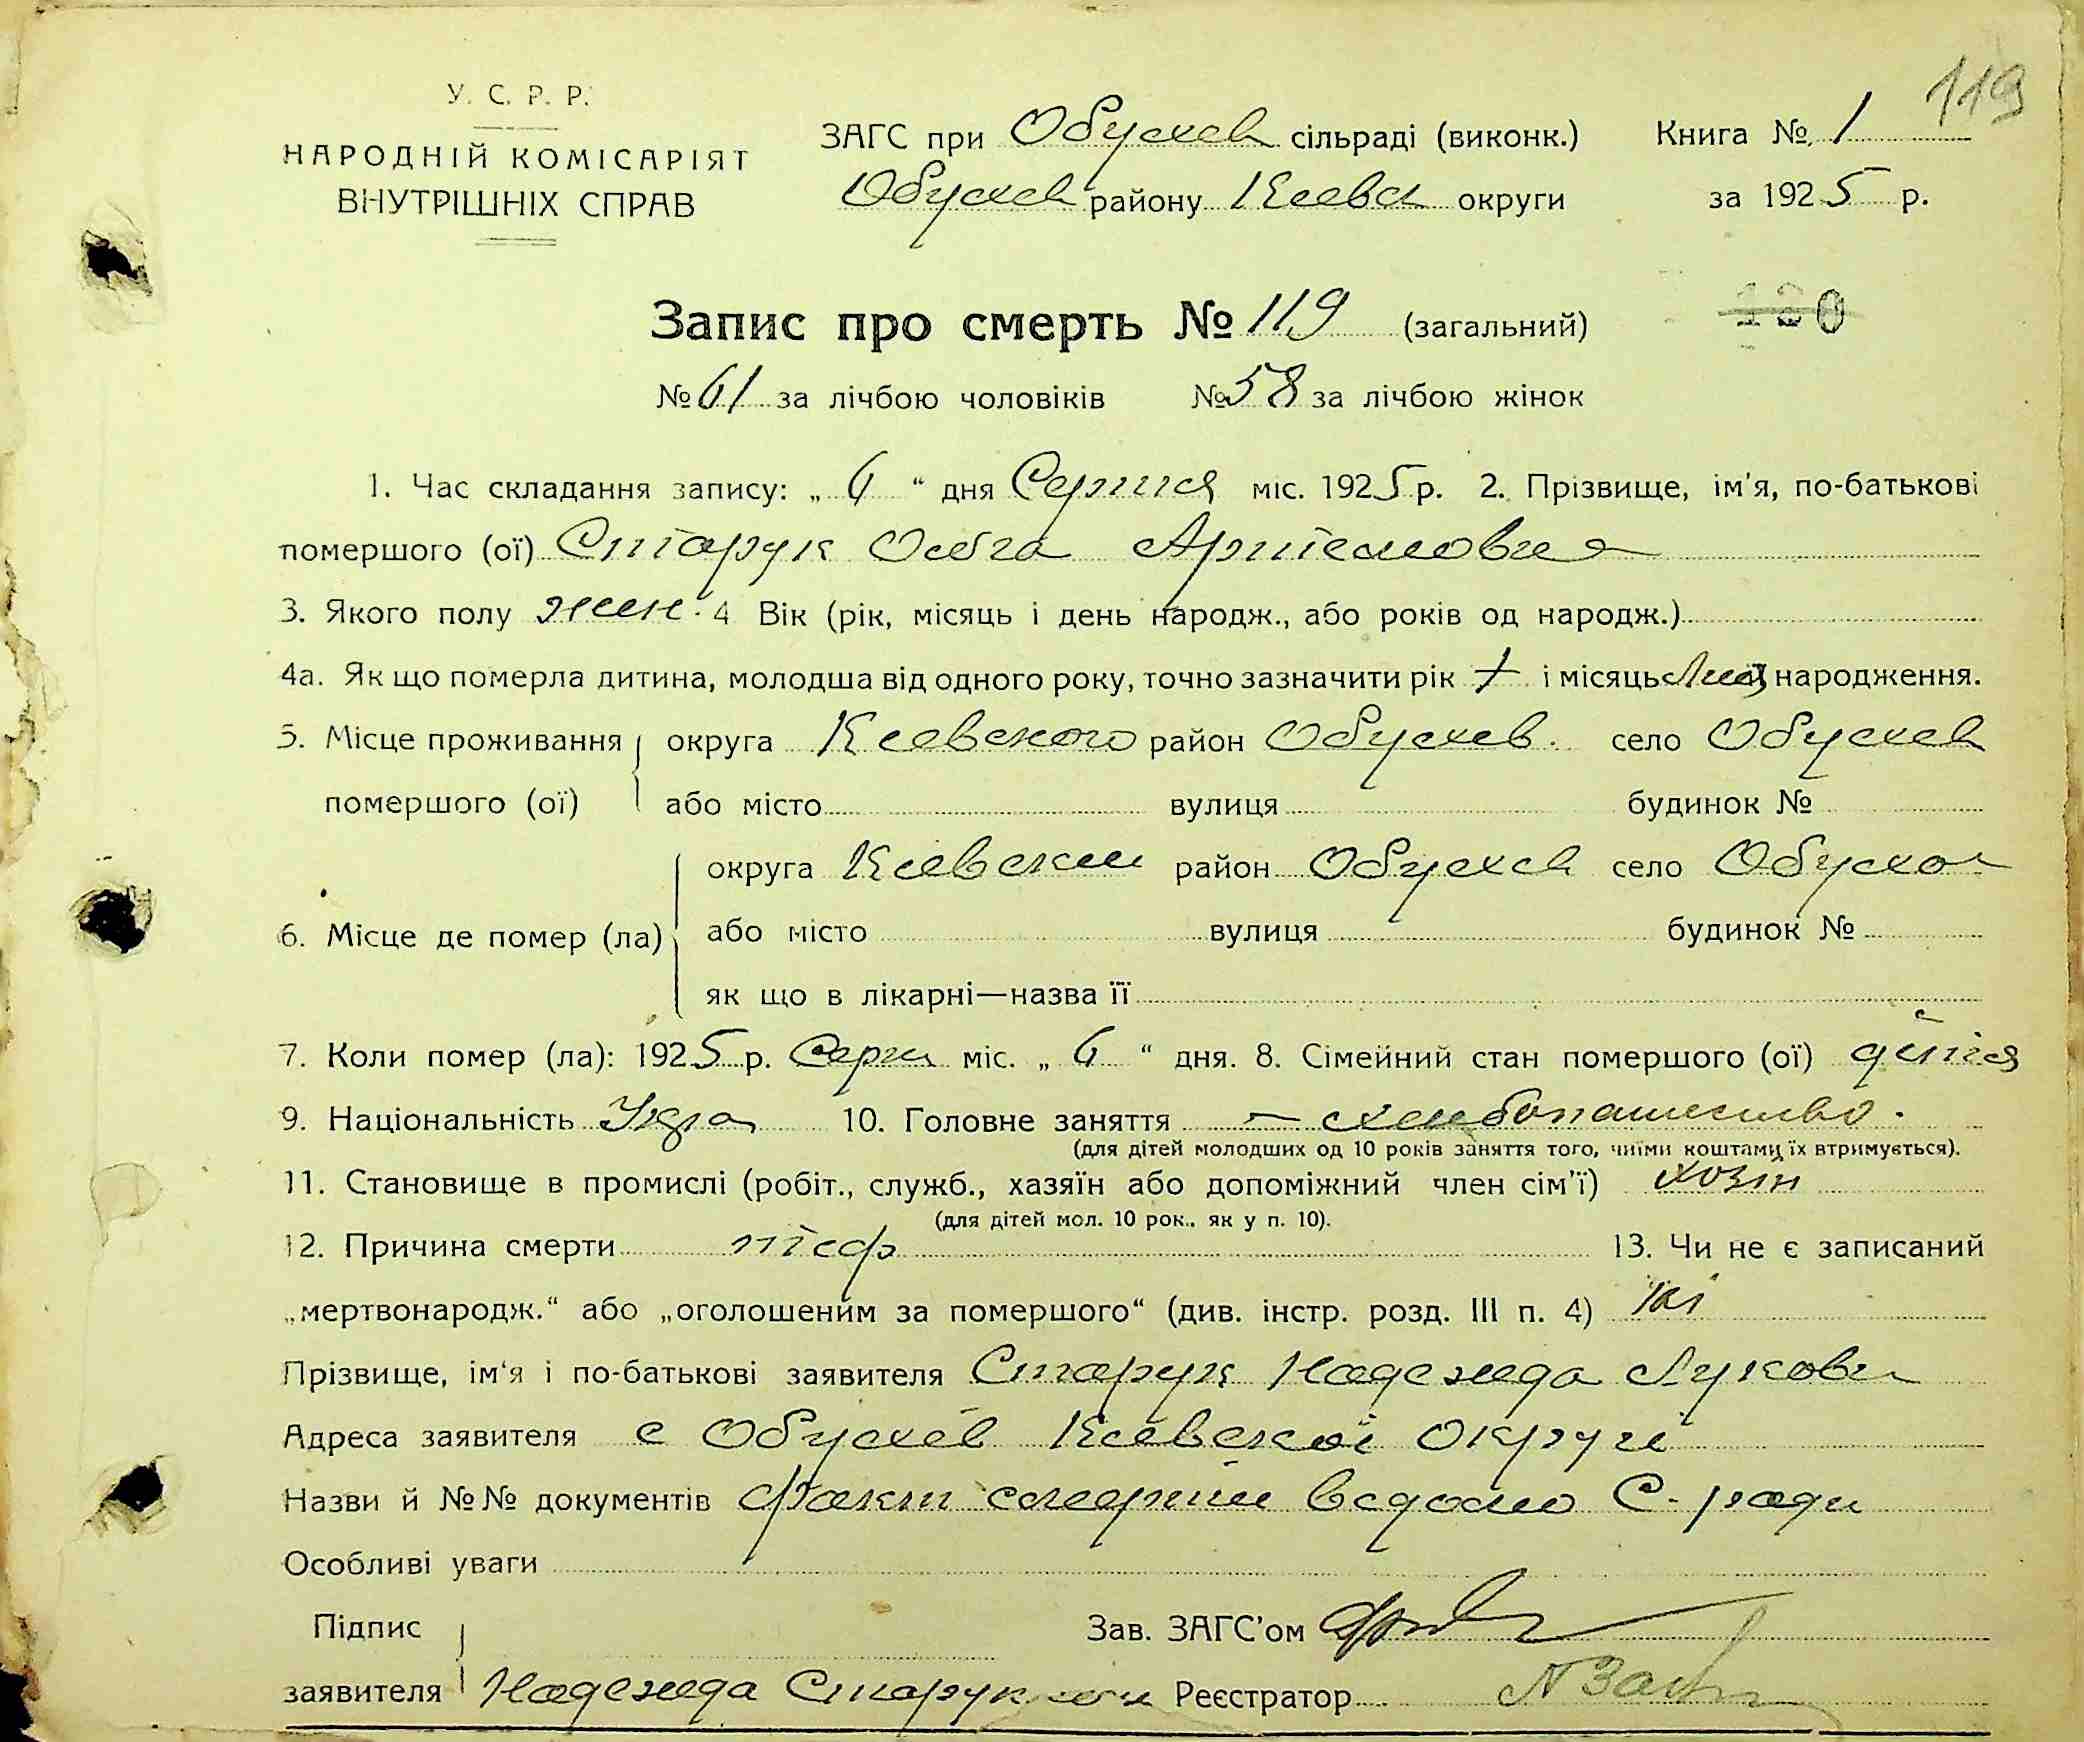 119
У. С. Р. Р.
НАРОДНІЙ КОМІСАРІЯТ
ВНУТРІШНІХ СПРАВ
ЗАГС при Обухов сільраді (виконк.) Книга № 1
Обухов району Киевск округи за 1925 р.
Запис про смерть № 119 (загальний)
130
№ 61 за лічбою чоловіків № 58 за лічбою жінок
1. Час складання запису: „ 6 “ дня Серпня міс. 1925 р. 2. Прізвище, ім'я, по-батькові
помершого (ої) Старук Ольга Артемовна
3. Якого полу жен. 4 Вік (рік, місяць і день народж., або років од народж.)
4а. Як що померла дитина, молодша від одного року, точно зазначити рік і місяць народження.
5. Місце проживання округа Киевского район Обухов. село Обухов
помершого (ої) або місто вулиця будинок №
округа Киевский район Обухов село Обухов
6. Місце де помер (ла) або місто вулиця будинок №
як що в лікарні—назва її
7. Коли помер (ла): 1925 р. Серпн міс. „ 6 “ дня. 8. Сімейний стан помершого (ої) дитя
9. Національність Укра 10. Головне заняття — хлебопашество.
(для дітей молодших од 10 років заняття того, чиїми коштами їх втримується).
11. Становище в промислі (робіт., служб., хазяїн або допоміжний член сім'ї) хозяїн
(для дітей мол. 10 рок., як у п. 10).
12. Причина смерти тиф 13. Чи не є записаний
„мертвонародж.“ або „оголошеним за помершого“ (див. інстр. розд. III п. 4) Ні
Прізвище, ім'я і по-батькові заявителя Старук Надежда Луковн
Адреса заявителя с Обухов Киевскої округи
Назви й №№ документів факт смерти ведомо С. ради
Особливі уваги
Підпис Зав. ЗАГС'ом
заявителя Надежда Старук Реєстратор